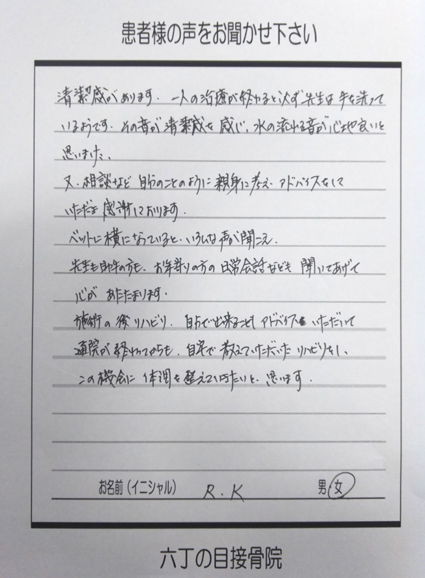 患者様の声をお聞かせ下さい
清潔感があります。一人の治療が終わると必ず先生は手を洗って
いるようです。その音が清潔感を感じ、水の流れる音が心地良いと
思いました。
又、相談など自分のことのように親身に考え、アドバイスをして
いただき感謝しております。
ベットに横になっていると、いろんな声が聞こえ、
先生も助手の方も、お年寄りの方の日常会話なども聞いてあげて
心があたたまります。
施術の後リハビリ、自分で出来ることもアドバイスをいただいて
通院が終わってからも、自宅で教えていただいたリハビリをし、
この機会に体調を整えていきたいと、思います。
お名前(イニシャル) R.K 男・女
六丁の目接骨院